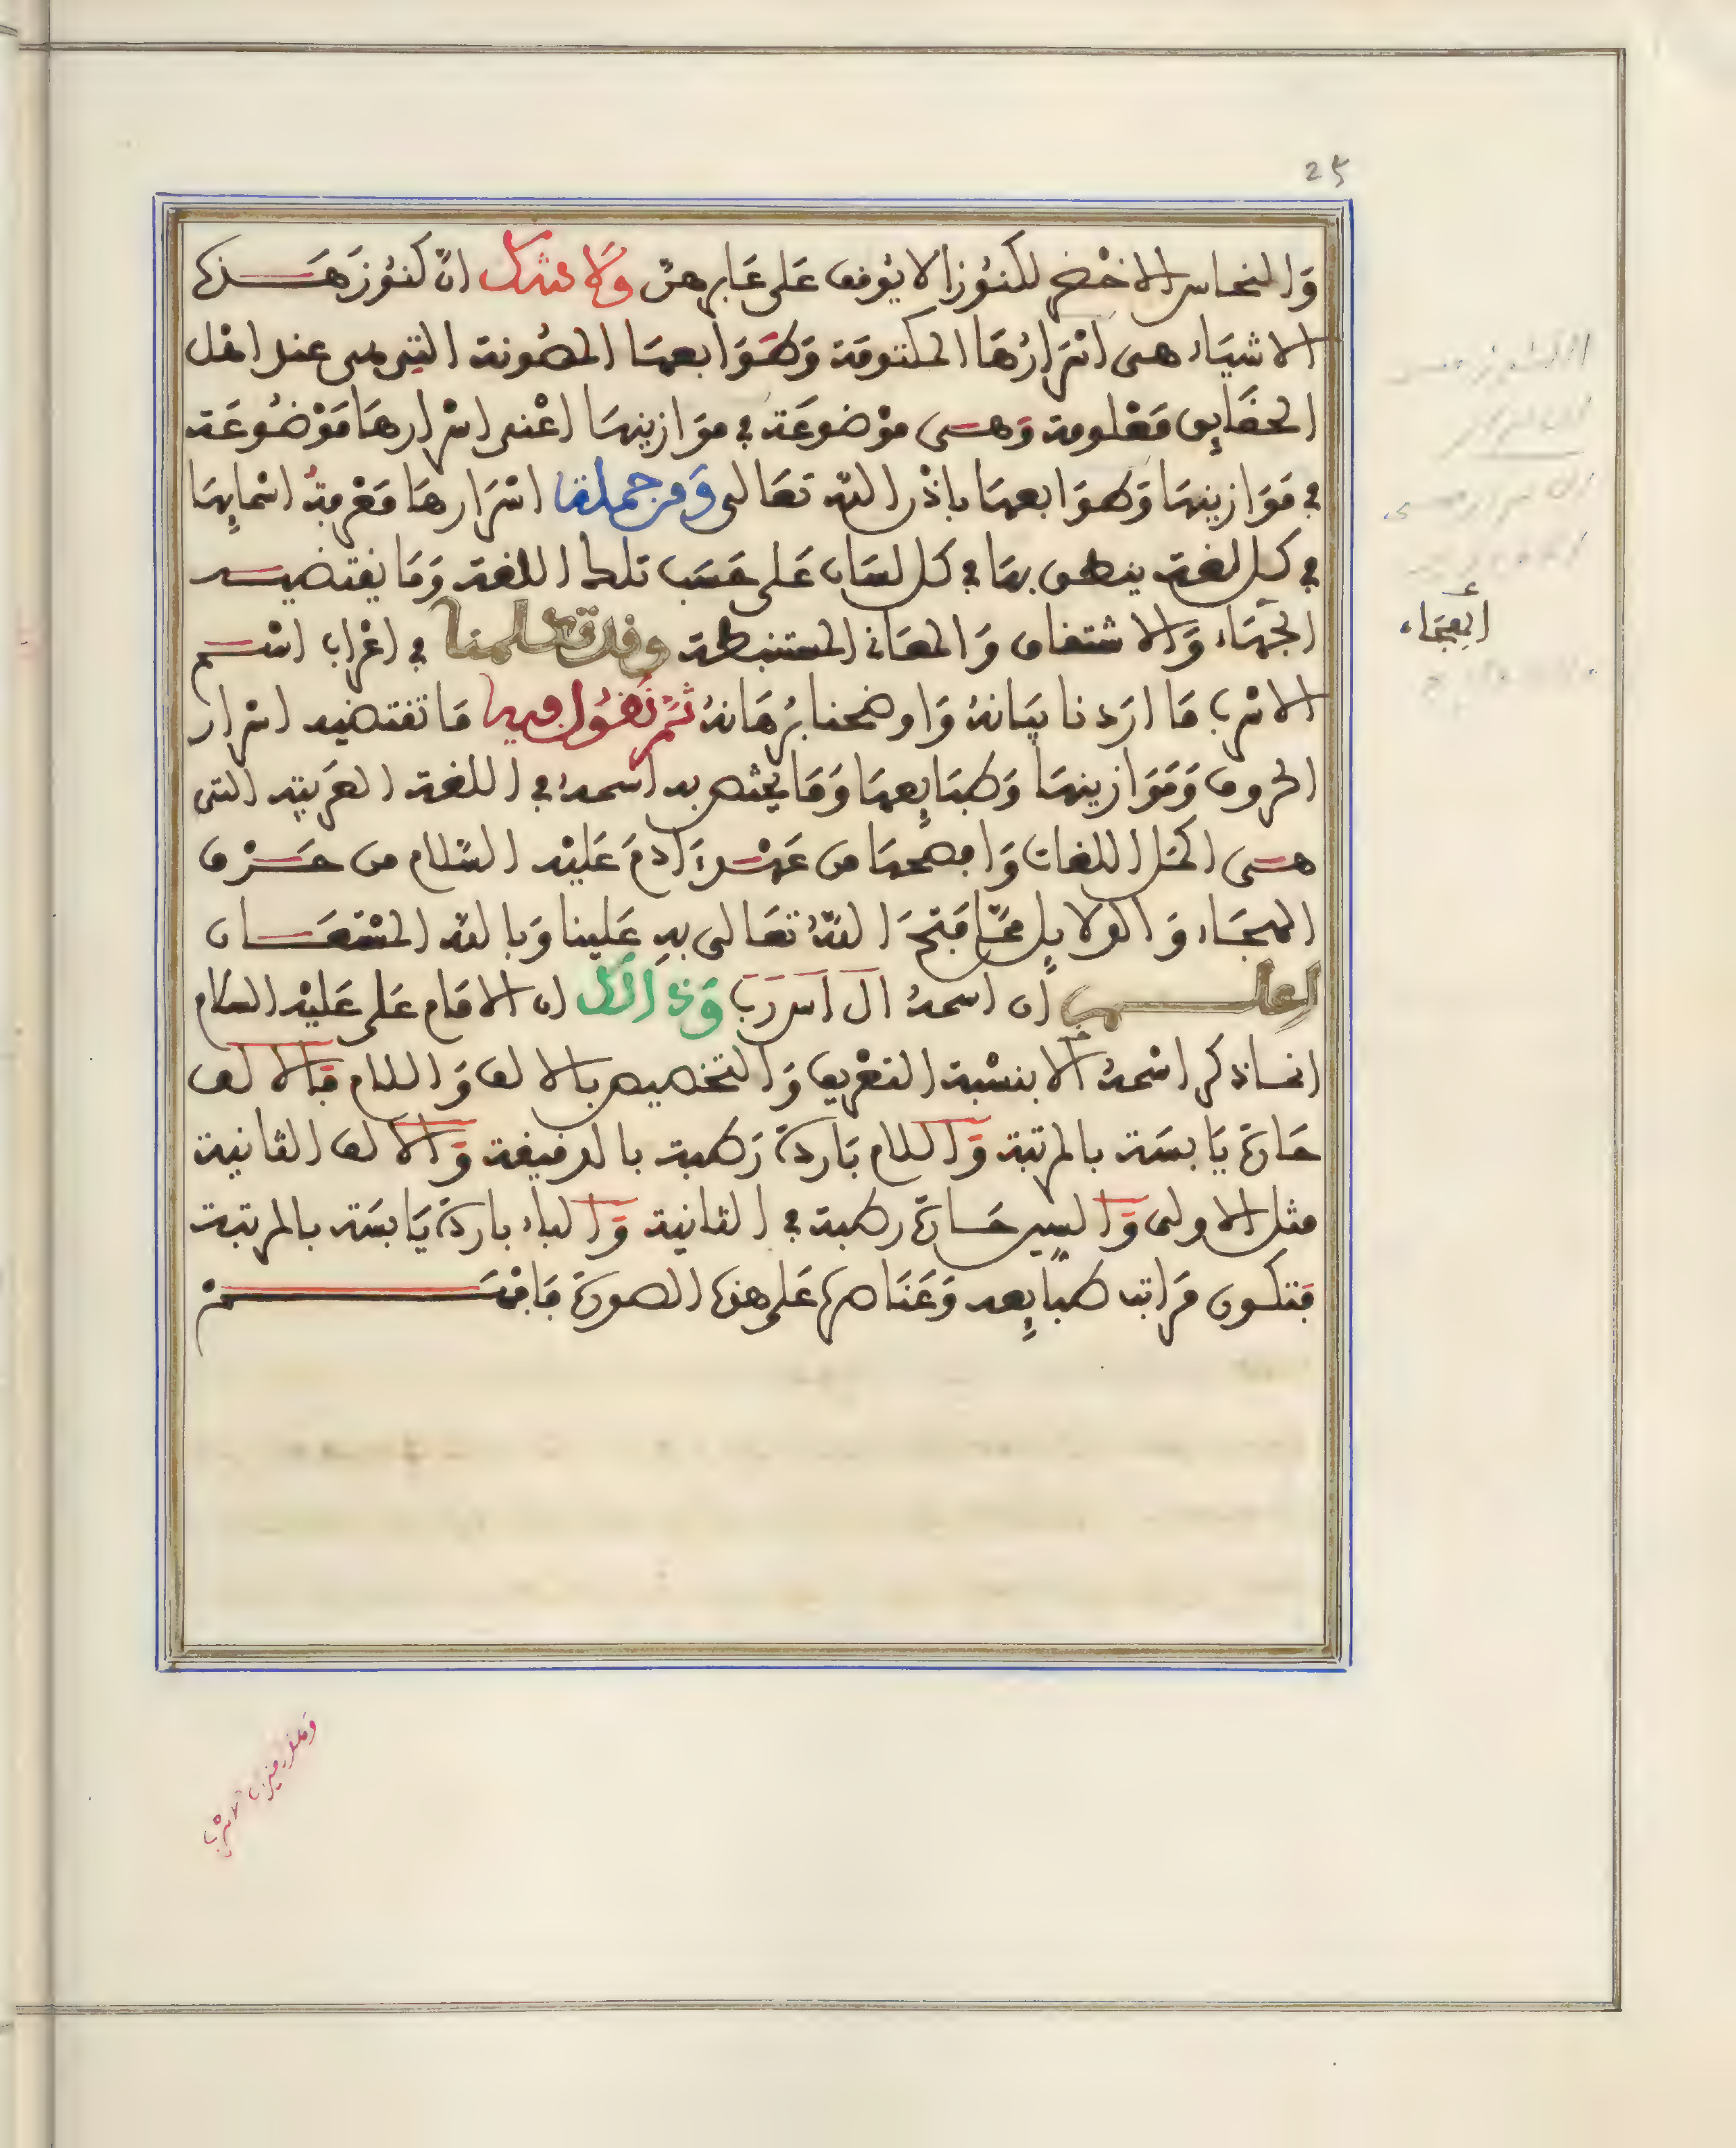 25
وَالنحاس الاخْضَر لكنُوز الا يُوقف عَلى عَابرهنّ وَلا شك انّ كنُوزَ هَذه
الاشيَاء هى اسْرَارُهَا المكتومَة وَطَوَابعهَا المصُونة التى هى عند اهْل
الحقَايِق مَعْلومة وَهى موْضوعَة في موَازينهَا اعْنى اسْرارهَا مَوْضُوعَة
في مَوَازينهَا وَطوَابعهَا باذْن اللّه تعَالى وَمن جملة اسْرَارهَا مَعْرفةُ اسْمايِهَا
في كل لغة ينطق بهَا في كل لسَان عَلى حَسَب تلك اللغة وَمَا يقتضيه
الجهَاء وَالاشتقاق وَالمعَانى المستنبطة وقد تكلمنا في اعْراب اسْم
الاسْرب مَا ارَدنا بيَانهُ وَاوضحنا بُرهَانهُ ثمّ نقُول فيه مَا تقتضيه اسْرار
الحروف وَمَوَازينهَا وَطبَايِعهَا وَمَا يختص به اسمهُ في اللغة العَربية التى
هى اكمَل اللغات وَافصحهَا من عَهْد ءَادمَ عَليْه السّلام من حَرْف
الهجَاء وَالدلايِل ممّا فَتحَ اللّهُ تعَالى بهِ عَلينا وَباللّه المسْتعَان
اِعلم ان اسمهُ ال اس رب وَذالك ان الامَام عَلى عَليْه السلام
انمَا ذكر اسْمهُ الا بنسْبة التعْريف وَالتخصيص بالالف وَاللام فَالالف
حَارة يَابسَة بالمرتبة وَاللام بَاردة رَطبة بالدقيقة وَالالف الثانية
مثل الاولى وَالسين حَارة رطبة في الثانية وَالباء باردة يَابسَة بالمرتبة
فتكون مَراتب طبَايِعه وَعَنَاصره عَلى هذه الصورة فَافهَمْ
الهجَاء
وهذه ميزان الاسْرب